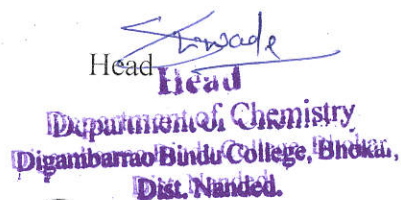 Head
Head
Department of Chemistry
Digambarrao Bindu College, Bhokar,
Dist. Nanded.